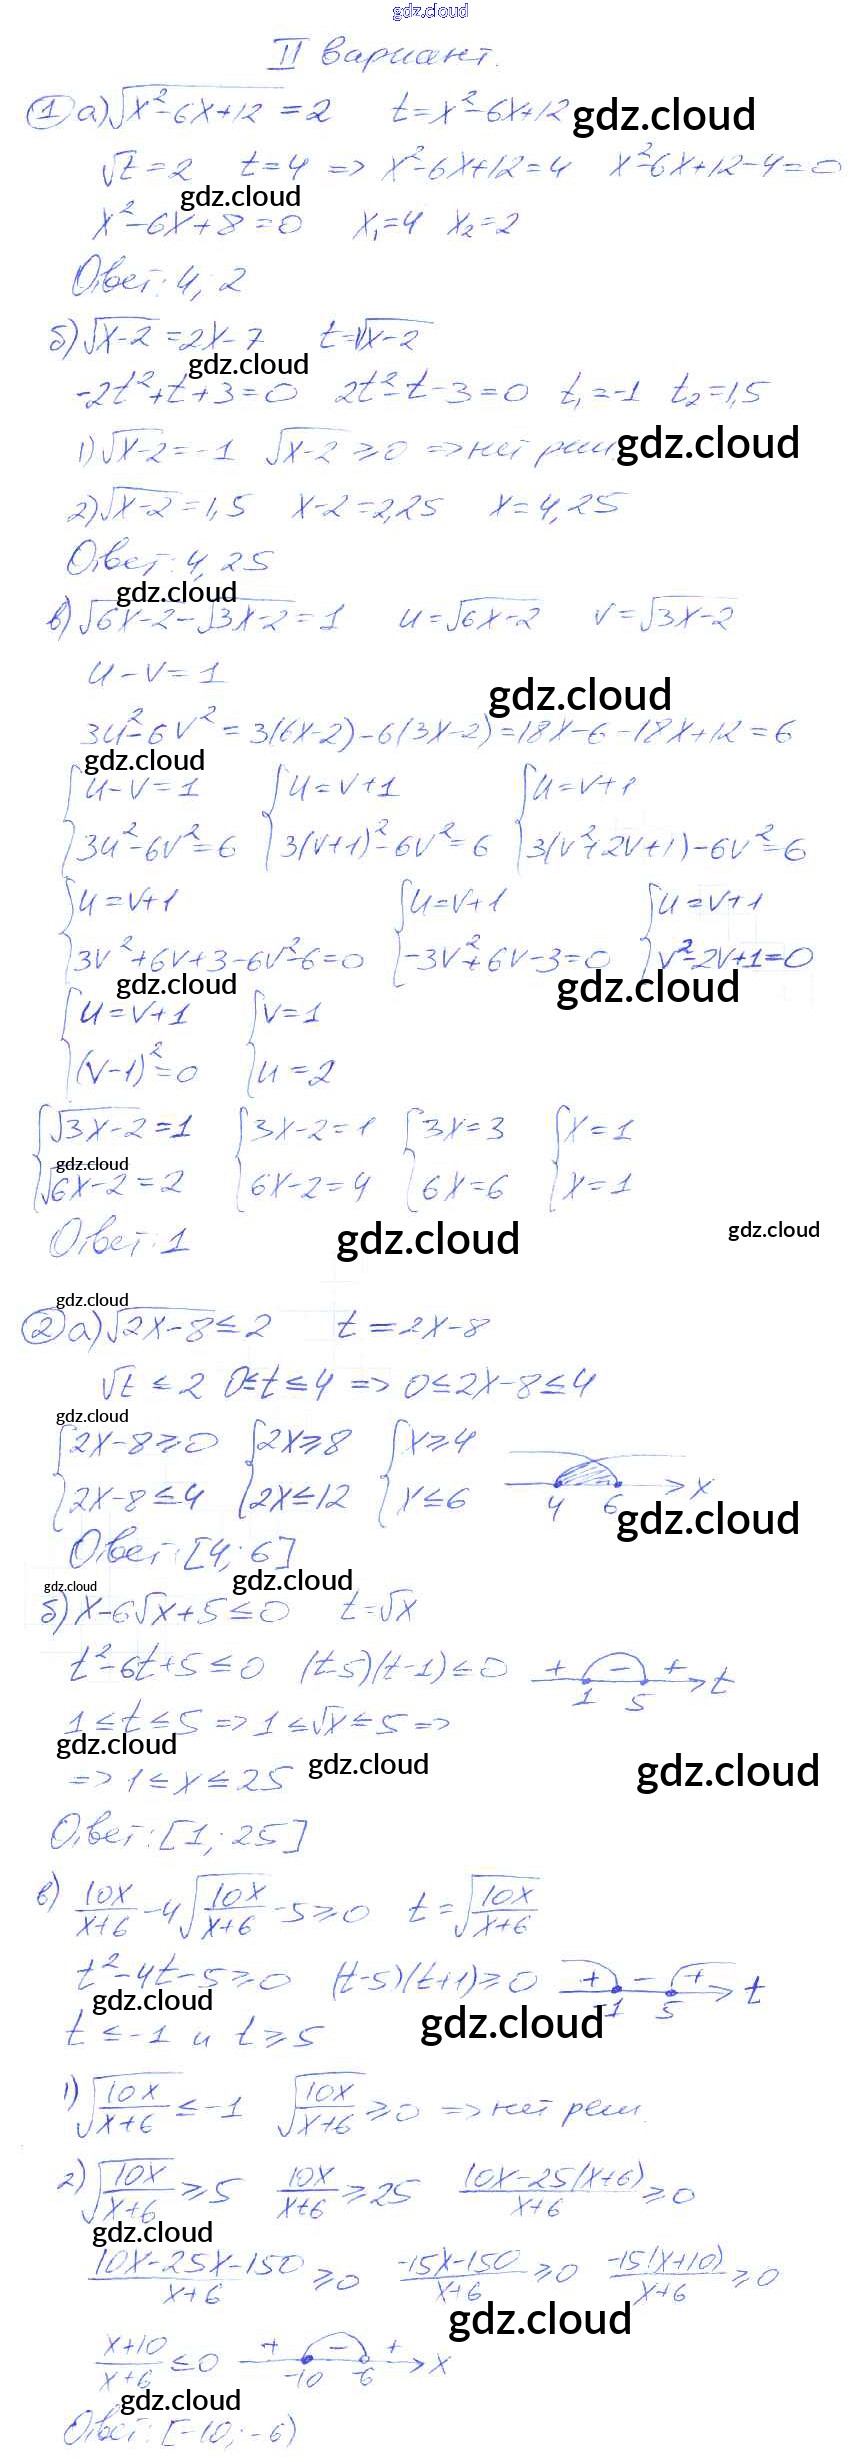 gdz.cloud
II вариант.
① а) √(x²-6x+12) = 2   t = x²-6x+12   gdz.cloud
√t = 2   t = 4 => x²-6x+12 = 4   x²-6x+12-4 = 0
gdz.cloud
x²-6x+8 = 0   x₁=4   x₂=2
Ответ: 4; 2
б) √(x-2) = 2x-7   t = √(x-2)
gdz.cloud
-2t²+t+3=0   2t²-t-3=0   t₁=-1   t₂=1,5
1) √(x-2) = -1   √(x-2) ≥ 0 => нет реш.   gdz.cloud
2) √(x-2) = 1,5   x-2 = 2,25   x = 4,25
Ответ: 4,25
gdz.cloud
в) √(6x-2) - √(3x-2) = 1   u = √(6x-2)   v = √(3x-2)
u - v = 1
gdz.cloud
3u²-6v² = 3(6x-2)-6(3x-2) = 18x-6-18x+12 = 6
gdz.cloud
{u-v=1   {u=v+1   {u=v+1
{3u²-6v²=6   {3(v+1)²-6v²=6   {3(v²+2v+1)-6v²=6
{u=v+1   {u=v+1   {u=v+1
{3v²+6v+3-6v²-6=0   {-3v²+6v-3=0   {v²-2v+1=0
gdz.cloud   gdz.cloud
{u=v+1   {v=1
{(v-1)²=0   {u=2
{√(3x-2)=1   {3x-2=1   {3x=3   {x=1
gdz.cloud
{√(6x-2)=2   {6x-2=4   {6x=6   {x=1
Ответ: 1   gdz.cloud   gdz.cloud
gdz.cloud
② а) √(2x-8) ≤ 2   t = 2x-8
√t ≤ 2   0≤t≤4 => 0≤2x-8≤4
gdz.cloud
{2x-8≥0   {2x≥8   {x≥4
{2x-8≤4   {2x≤12   {x≤6   4   6   x
gdz.cloud
Ответ: [4; 6]
gdz.cloud   gdz.cloud
б) x-6√x+5 ≤ 0   t=√x
t²-6t+5 ≤ 0   (t-5)(t-1) ≤ 0   + - +   1   5   t
1 ≤ t ≤ 5 => 1 ≤ √x ≤ 5 =>
gdz.cloud   gdz.cloud   gdz.cloud
=> 1 ≤ x ≤ 25
Ответ: [1; 25]
в) 10x/(x+6) - 4√(10x/(x+6)) - 5 ≥ 0   t = √(10x/(x+6))
t²-4t-5 ≥ 0   (t-5)(t+1) ≥ 0   + - +   -1   5   t
gdz.cloud   gdz.cloud
t ≤ -1 и t ≥ 5
1) √(10x/(x+6)) ≤ -1   √(10x/(x+6)) ≥ 0 => нет реш.
2) √(10x/(x+6)) ≥ 5   10x/(x+6) ≥ 25   (10x-25(x+6))/(x+6) ≥ 0
gdz.cloud
(10x-25x-150)/(x+6) ≥ 0   (-15x-150)/(x+6) ≥ 0   -15(x+10)/(x+6) ≥ 0
gdz.cloud
(x+10)/(x+6) ≤ 0   + - +   -10   -6   x
gdz.cloud
Ответ: [-10; -6)